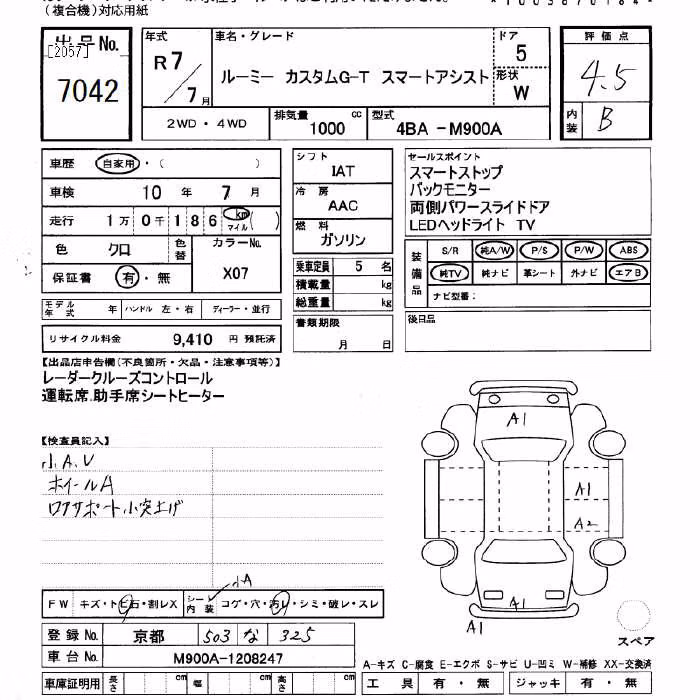 (複合機)対応用紙
出品No.
[2057]
7042
年式
R7/7月
車名・グレード
ルーミー カスタムG-T スマートアシスト
ドア
5
形状
W
評価点
4.5
内装
B
2WD・4WD
排気量
1000 cc
型式
4BA -M900A
車歴 自家用・( )
車検 10年 7月
走行 1万 0千 1 8 6 km マイル ( )
色 クロ
色替
カラーNo.
X07
保証書 有・無
モデル年式 年
ハンドル 左・右
ディーラー・並行
リサイクル料金 9,410 円 預託済
シフト
IAT
冷房
AAC
燃料
ガソリン
乗車定員 5 名
積載量 kg
総重量 kg
書類期限
月 日
セールスポイント
スマートストップ
バックモニター
両側パワースライドドア
LEDヘッドライト TV
装備品
S/R 純A/W P/S P/W ABS
純TV 純ナビ 革シート 外ナビ エアB
ナビ型番:
後日品
【出品店申告欄(不良箇所・欠品・注意事項等)】
レーダークルーズコントロール
運転席.助手席シートヒーター
【検査員記入】
小A.U
ホイールA
ロアサポート小突上げ
小A
FW キズ・トビ石・割レX
シート内装 コゲ・穴・汚レ・シミ・破レ・スレ
登録No. 京都 503 な 325
車台No. M900A-1208247
車庫証明用 長さ cm 幅 cm 高さ cm
A1
A1
A2
A1
A1
スペア
A-キズ C-腐食 E-エクボ S-サビ U-凹ミ W-補修 XX-交換済
工具 有・無 ジャッキ 有・無